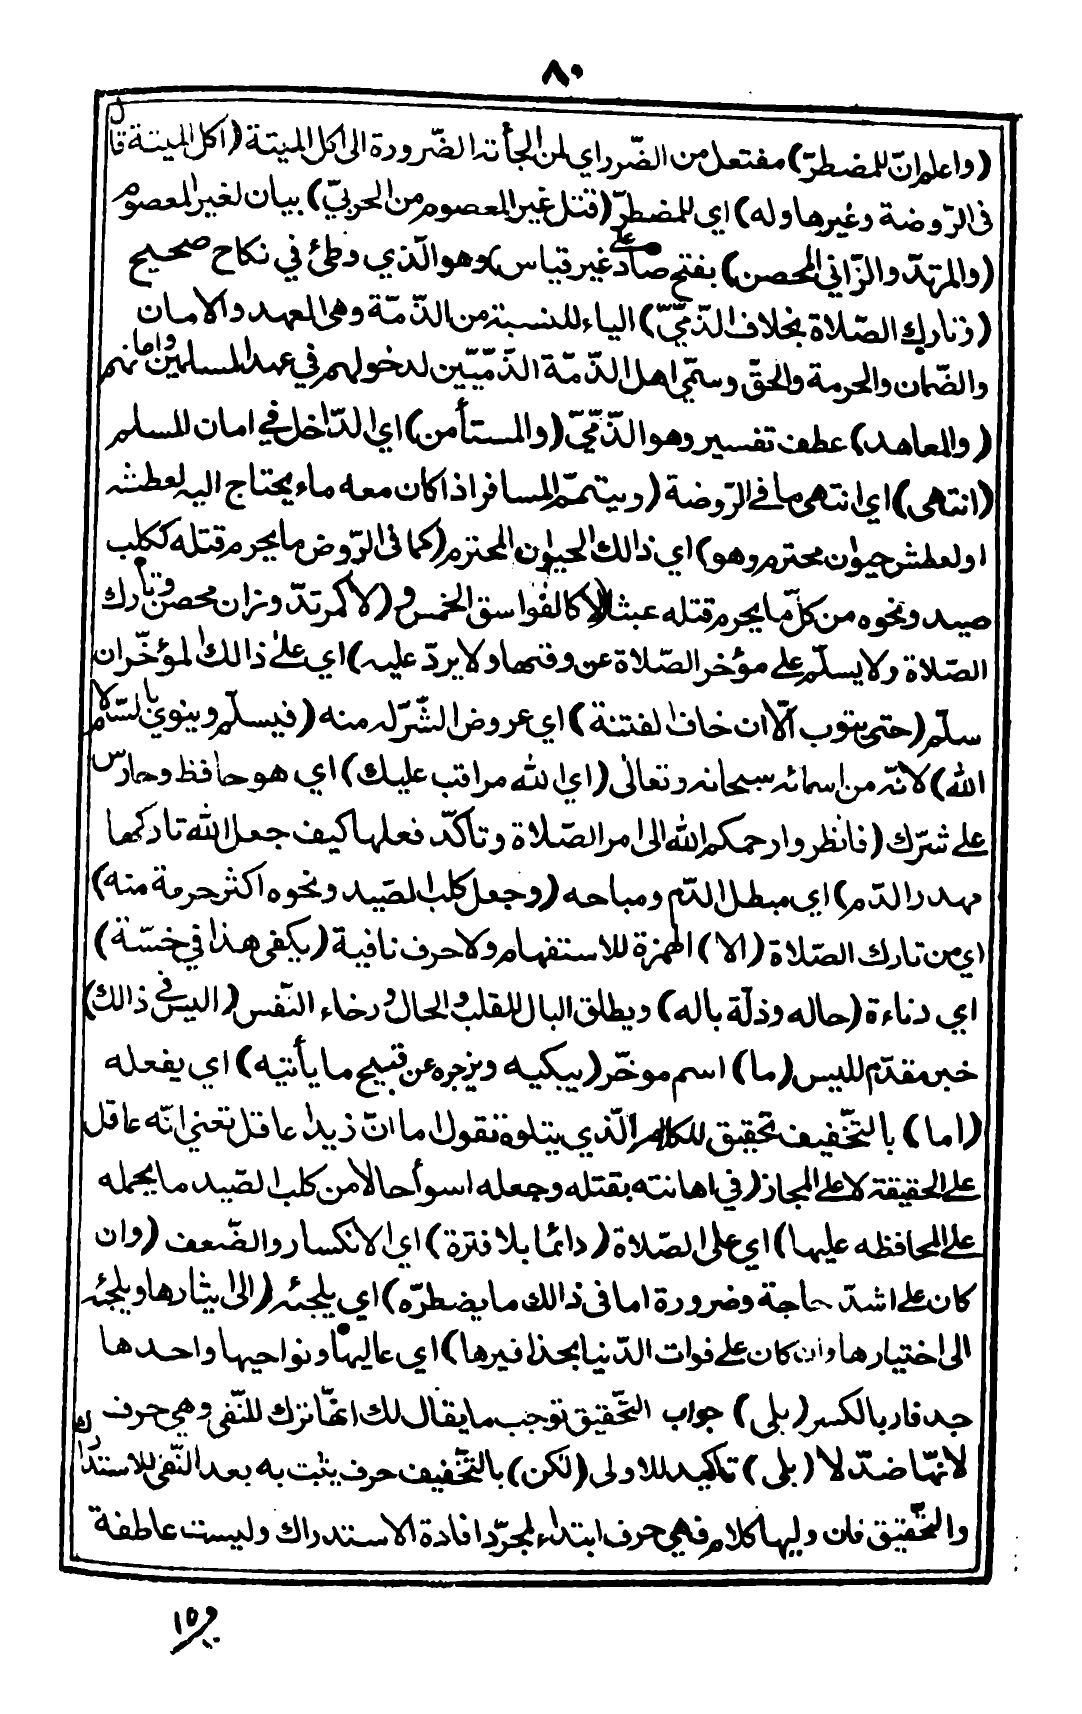 ٨٠
(واعلم انّ للمضطرّ) مفتعل من الضّرر اي لمن الجأته الضّرورة الى اكل الميتة (اكل الميتة قال
فى الرّوضة وغيرها وله) اي للمضطرّ (قتل غير المعصوم من الحربيّ) بيان لغير المعصوم
(والمرتدّ والزّاني المحصن) بفتح صاد على غير قياس وهو الّذي وطئ في نكاح صحيح
(وتارك الصّلاة بخلاف الذّمّيّ) الياء للنسبة من الذّمّة وهى العهد والامان
والضّمان والحرمة والحقّ وسمّي اهل الذّمّة الذّمّيّين لدخولهم في عهد المسلمين وامانهم
(والمعاهد) عطف تفسير وهو الذّمّيّ (والمستأمن) اي الدّاخل في امان المسلم
(انتهى) اي انتهى ما في الرّوضة (ويتيمّم المسافر اذا كان معه ماء يحتاج اليه لعطشه
او لعطش حيوان محترم وهو) اي ذالك الحيوان المحترم (كما فى الرّوض ما يحرم قتله ككلب
صيد ونحوه من كلّ ما يحرم قتله عبثا لا كالفواسق الخمس و (لا كمرتدّ وزان محصن وتارك
الصّلاة ولا يسلّم على مؤخر الصّلاة عن وقتها ولا يردّ عليه) اي على ذالك المؤخّر ان
سلّم (حتى يتوب الّا ان خاف الفتنة) اي عروض الشّرّ له منه (فيسلّم وينوي بالسّلام
الله) لانّه من اسمائه سبحانه وتعالى (اي الله مراقب عليك) اي هو حافظ وحارس
على شرّك (فانظروا رحمكم الله الى امر الصّلاة وتأكّد فعلها كيف جعل الله تاركها
مهدر الدّم) اي مبطل الدّم ومباحه (وجعل كلب الصّيد ونحوه اكثر حرمة منه)
اي من تارك الصّلاة (الا) الهمزة للاستفهام ولا حرف نافية (يكفى هذا في خسّة)
اي دناءة (حاله وذلّة باله) ويطلق البال للقلب والحال ورخاء النّفس (اليس في ذالك)
خبر مقدّم لليس (ما) اسم موخّر (يبكيه ويزجره عن قبيح ما يأتيه) اي يفعله
(اما) بالتّخفيف تحقيق للكلام الّذي يتلوه تقول اما انّ زيدا عاقل تعني انّه عاقل
على الحقيقة لا على المجاز (في اهانته بقتله وجعله اسوأ حالا من كلب الصّيد ما يحمله
على المحافظه عليها) اي على الصّلاة (دائما بلا فترة) اي الانكسار والضّعف (وان
كان على اشدّ حاجة وضرورة اما فى ذالك ما يضطرّه) اي يلجئه (الى ايثارها ويلجئه
الى اختيارها وان كان على فوات الدّنيا بحذافيرها) اي عاليها ونواحيها واحدها
حذفار بالكسر (بلى) جواب التّحقيق توجب ما يقال لك انّها ترك للنّفي وهي حرف
لانّها ضدّ لا (بلى) تأكيد للاولى (لكن) بالتّخفيف حرف يثبت به بعد النّفى للاستدراك
والتّحقيق فان وليها كلام فهي حرف ابتداء لمجرّد افادة الاستدراك وليست عاطفة